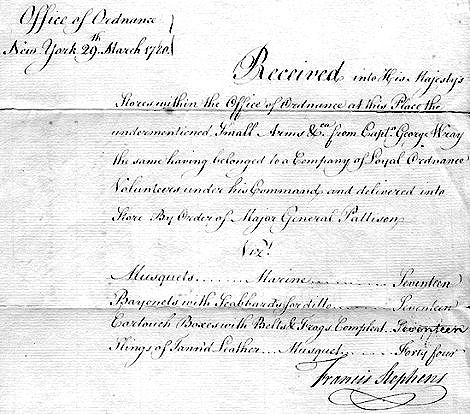 Office of Ordnance
New York 29th March 1780
Received into His Majesty's
Stores within the Office of Ordnance at this Place the
undermentioned Small Arms &ca from Captn George Wray
the same having belonged to a Company of Loyal Ordnance
Volunteers under his Command and delivered into
Store By Order of Major General Pattison
Vizt
Musquets Marine Seventeen
Bayonets with Scabbards for ditto Seventeen
Cartouch Boxes with Belts & Frogs Compleat Seventeen
Slings of Tann'd Leather Musquet Forty four
Francis Stephens